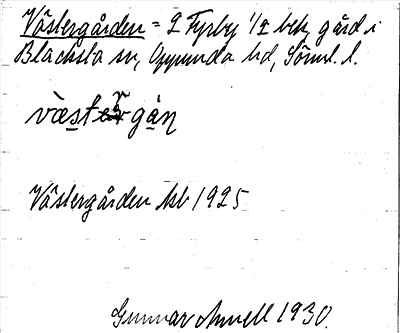 Västergården = 2 Fyrby 1/2 bek. gård i
Blacksta sn, Oppunda hd, Söml. l.
västergän
Västergården Asb 1925
Gunnar 1930.